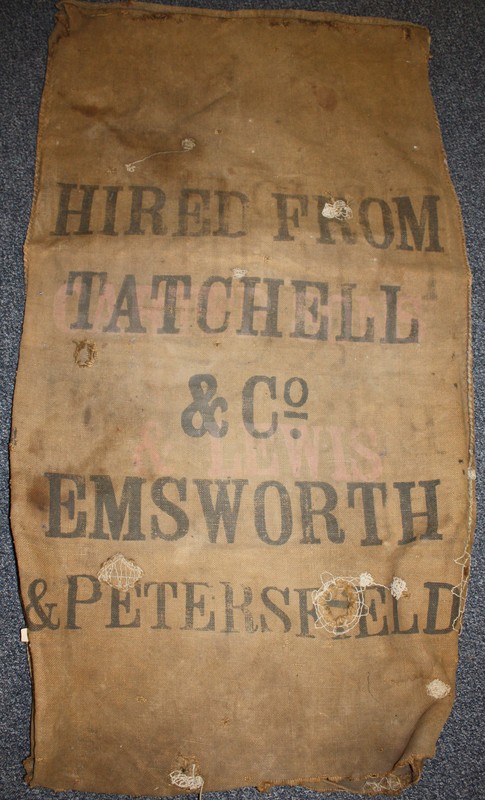 HIRED FROM
TATCHELL
& Co.
& LEWIS
EMSWORTH
& PETERSFIELD